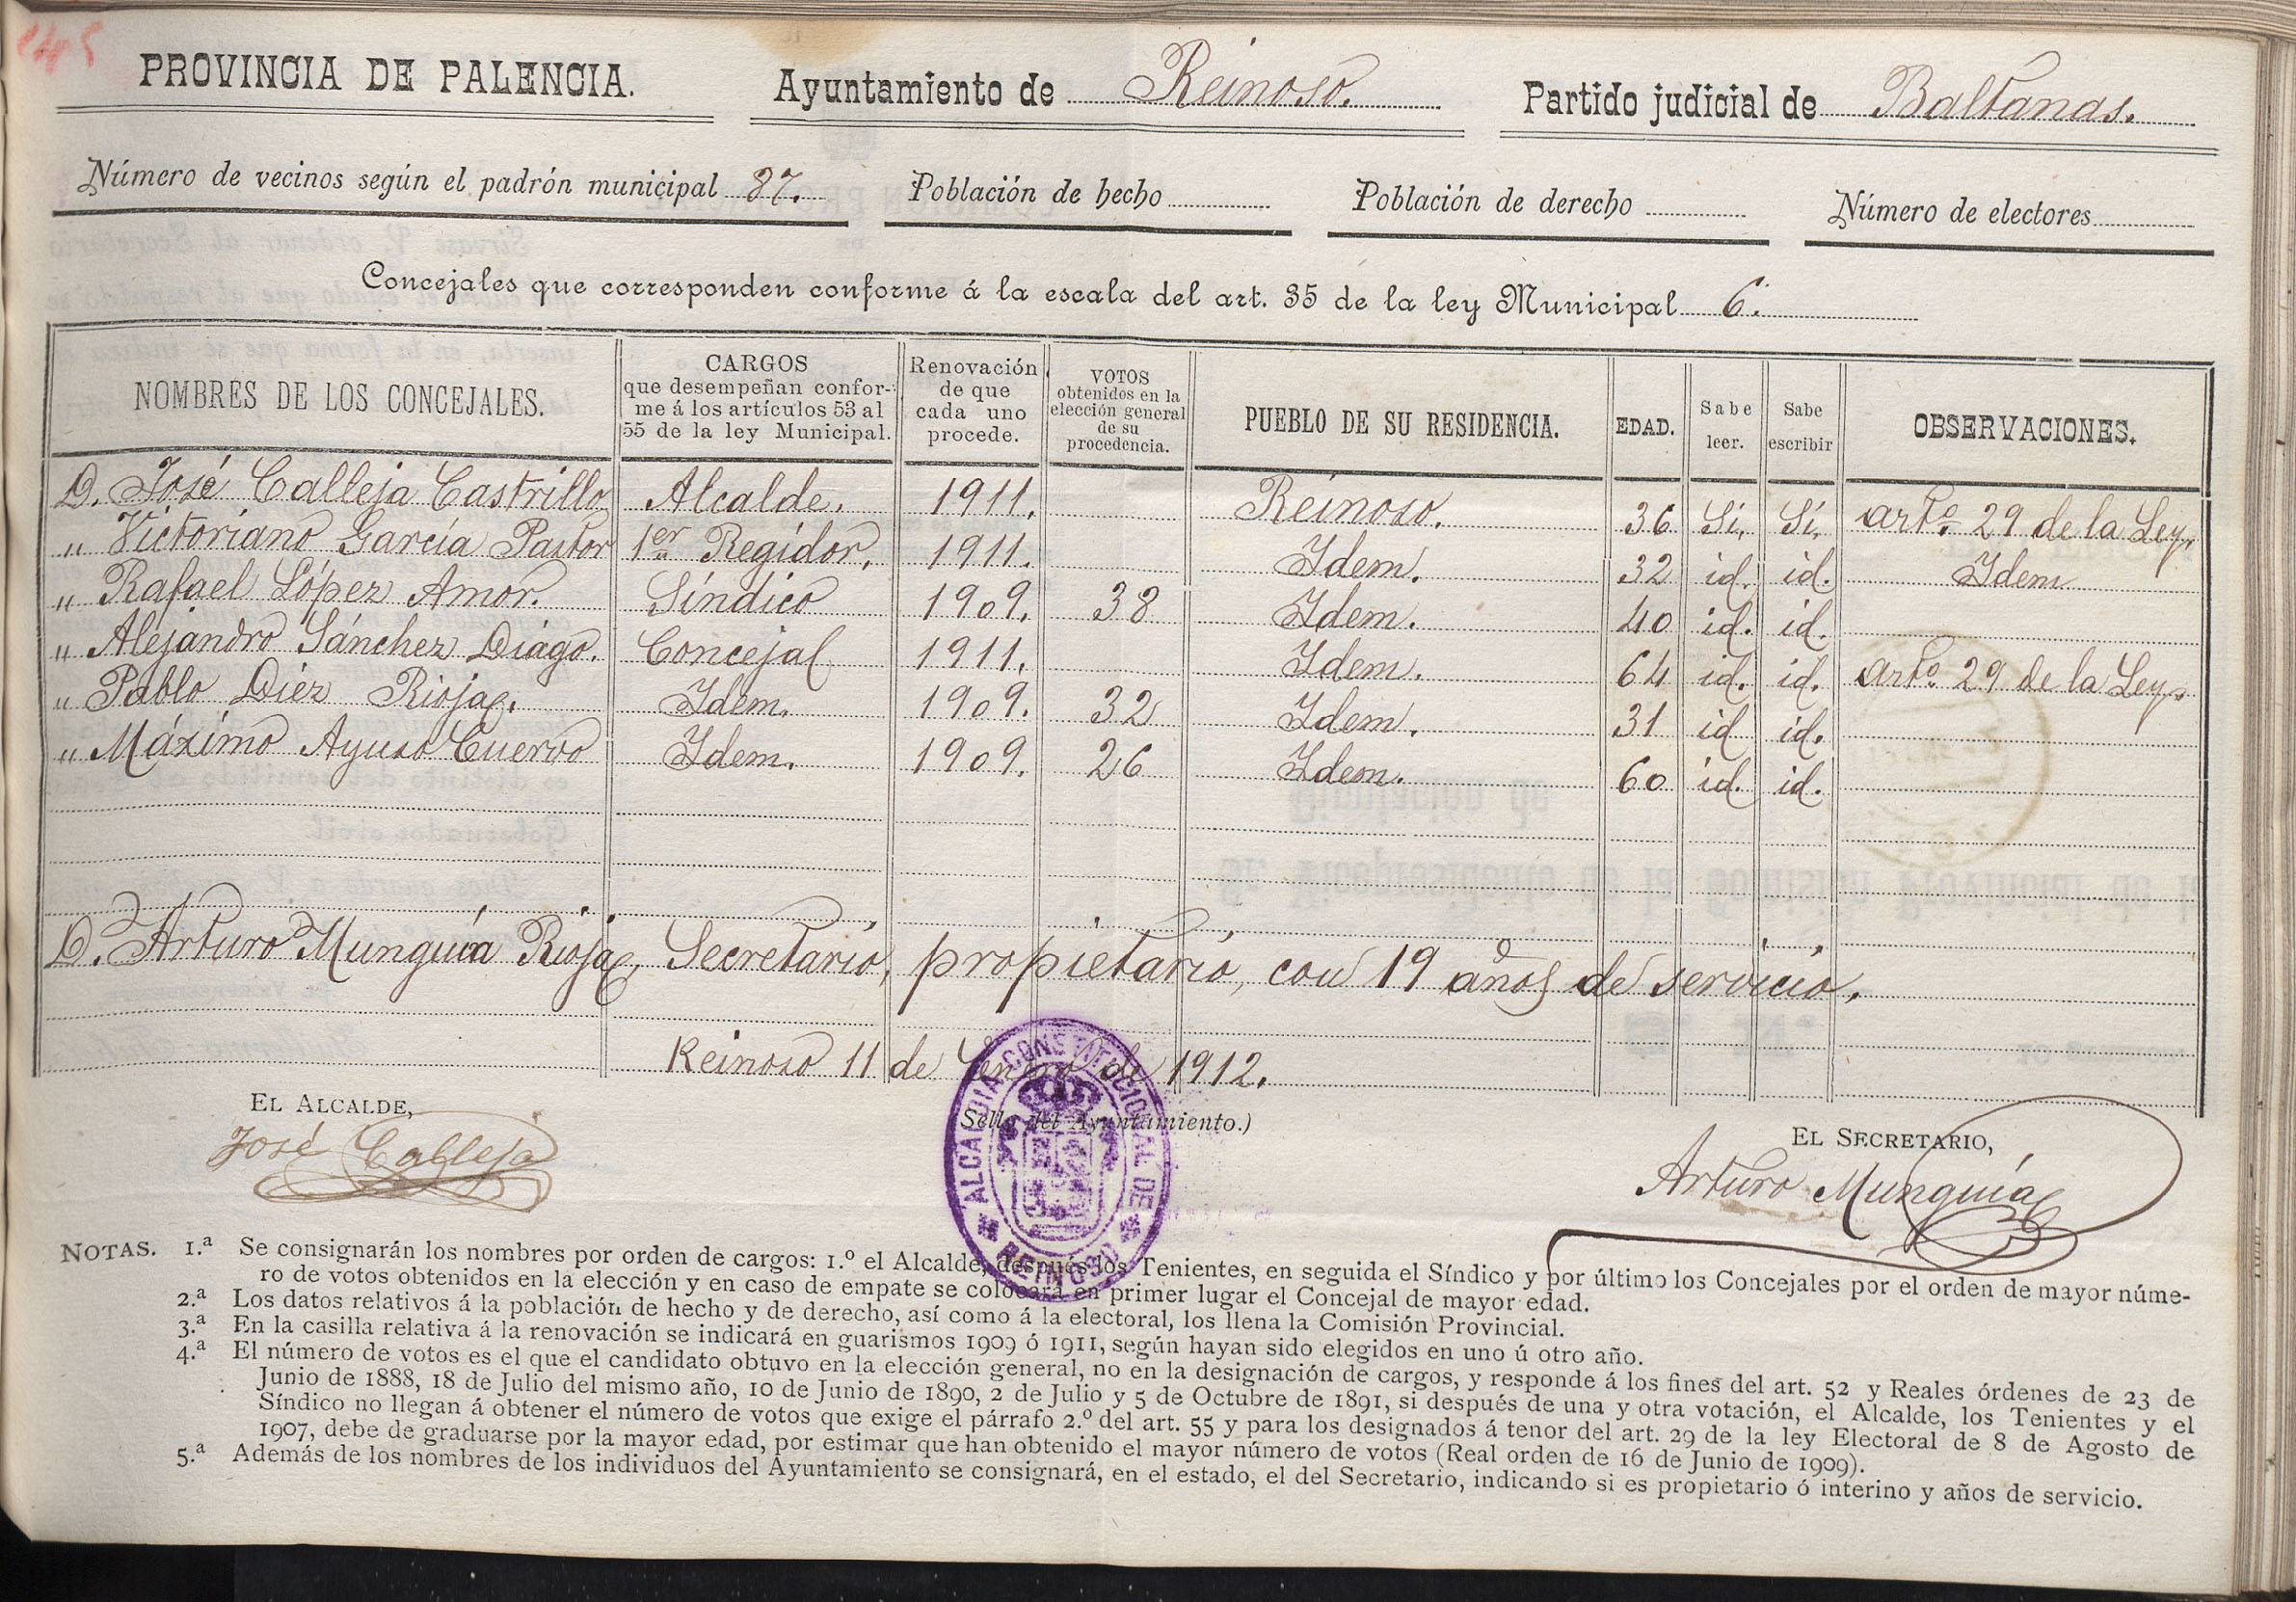 145
PROVINCIA DE PALENCIA.
Ayuntamiento de Reinoso.
Partido judicial de Baltanas.
Número de vecinos según el padrón municipal 87.
Población de hecho
Población de derecho
Número de electores
Concejales que corresponden conforme á la escala del art. 35 de la ley Municipal 6.
NOMBRES DE LOS CONCEJALES.
CARGOS
que desempeñan confor-
me á los artículos 53 al
55 de la ley Municipal.
Renovación
de que
cada uno
procede.
VOTOS
obtenidos en la
elección general
de su
procedencia.
PUEBLO DE SU RESIDENCIA.
EDAD.
Sabe
leer.
Sabe
escribir
OBSERVACIONES.
D. José Calleja Castrillo Alcalde. 1911. Reinoso. 36 Sí, Sí, artº. 29 de la Ley,
" Victoriano García Pastor 1er Regidor. 1911. Idem. 32 id. id. Idem
" Rafael López Amor. Síndico 1909. 38 Idem. 40 id. id.
" Alejandro Sánchez Diágo. Concejal 1911. Idem. 64 id. id. artº. 29 de la Ley.
" Pablo Diéz Rioja. Idem. 1909. 32 Idem. 31 id id.
" Máximo Ayuso Cuervo Idem. 1909. 26 Idem. 60 id. id.
D. Arturo Munguía Rioja, Secretario, propietario, con 19 años de servicio.
Reinoso 11 de Enero de 1912.
EL ALCALDE,
José Calleja
Sello del Ayuntamiento.)
ALCALDIA CONSTITUCIONAL DE
REINOSO
EL SECRETARIO,
Arturo Munguía
NOTAS. 1.ª Se consignarán los nombres por orden de cargos: 1.º el Alcalde, después los Tenientes, en seguida el Síndico y por último los Concejales por el orden de mayor núme-
ro de votos obtenidos en la elección y en caso de empate se colocará en primer lugar el Concejal de mayor edad.
2.ª Los datos relativos á la población de hecho y de derecho, así como á la electoral, los llena la Comisión Provincial.
3.ª En la casilla relativa á la renovación se indicará en guarismos 1909 ó 1911, según hayan sido elegidos en uno ú otro año.
4.ª El número de votos es el que el candidato obtuvo en la elección general, no en la designación de cargos, y responde á los fines del art. 52 y Reales órdenes de 23 de
Junio de 1888, 18 de Julio del mismo año, 10 de Junio de 1890, 2 de Julio y 5 de Octubre de 1891, si después de una y otra votación, el Alcalde, los Tenientes y el
Síndico no llegan á obtener el número de votos que exige el párrafo 2.º del art. 55 y para los designados á tenor del art. 29 de la ley Electoral de 8 de Agosto de
1907, debe de graduarse por la mayor edad, por estimar que han obtenido el mayor número de votos (Real orden de 16 de Junio de 1909).
5.ª Además de los nombres de los individuos del Ayuntamiento se consignará, en el estado, el del Secretario, indicando si es propietario ó interino y años de servicio.